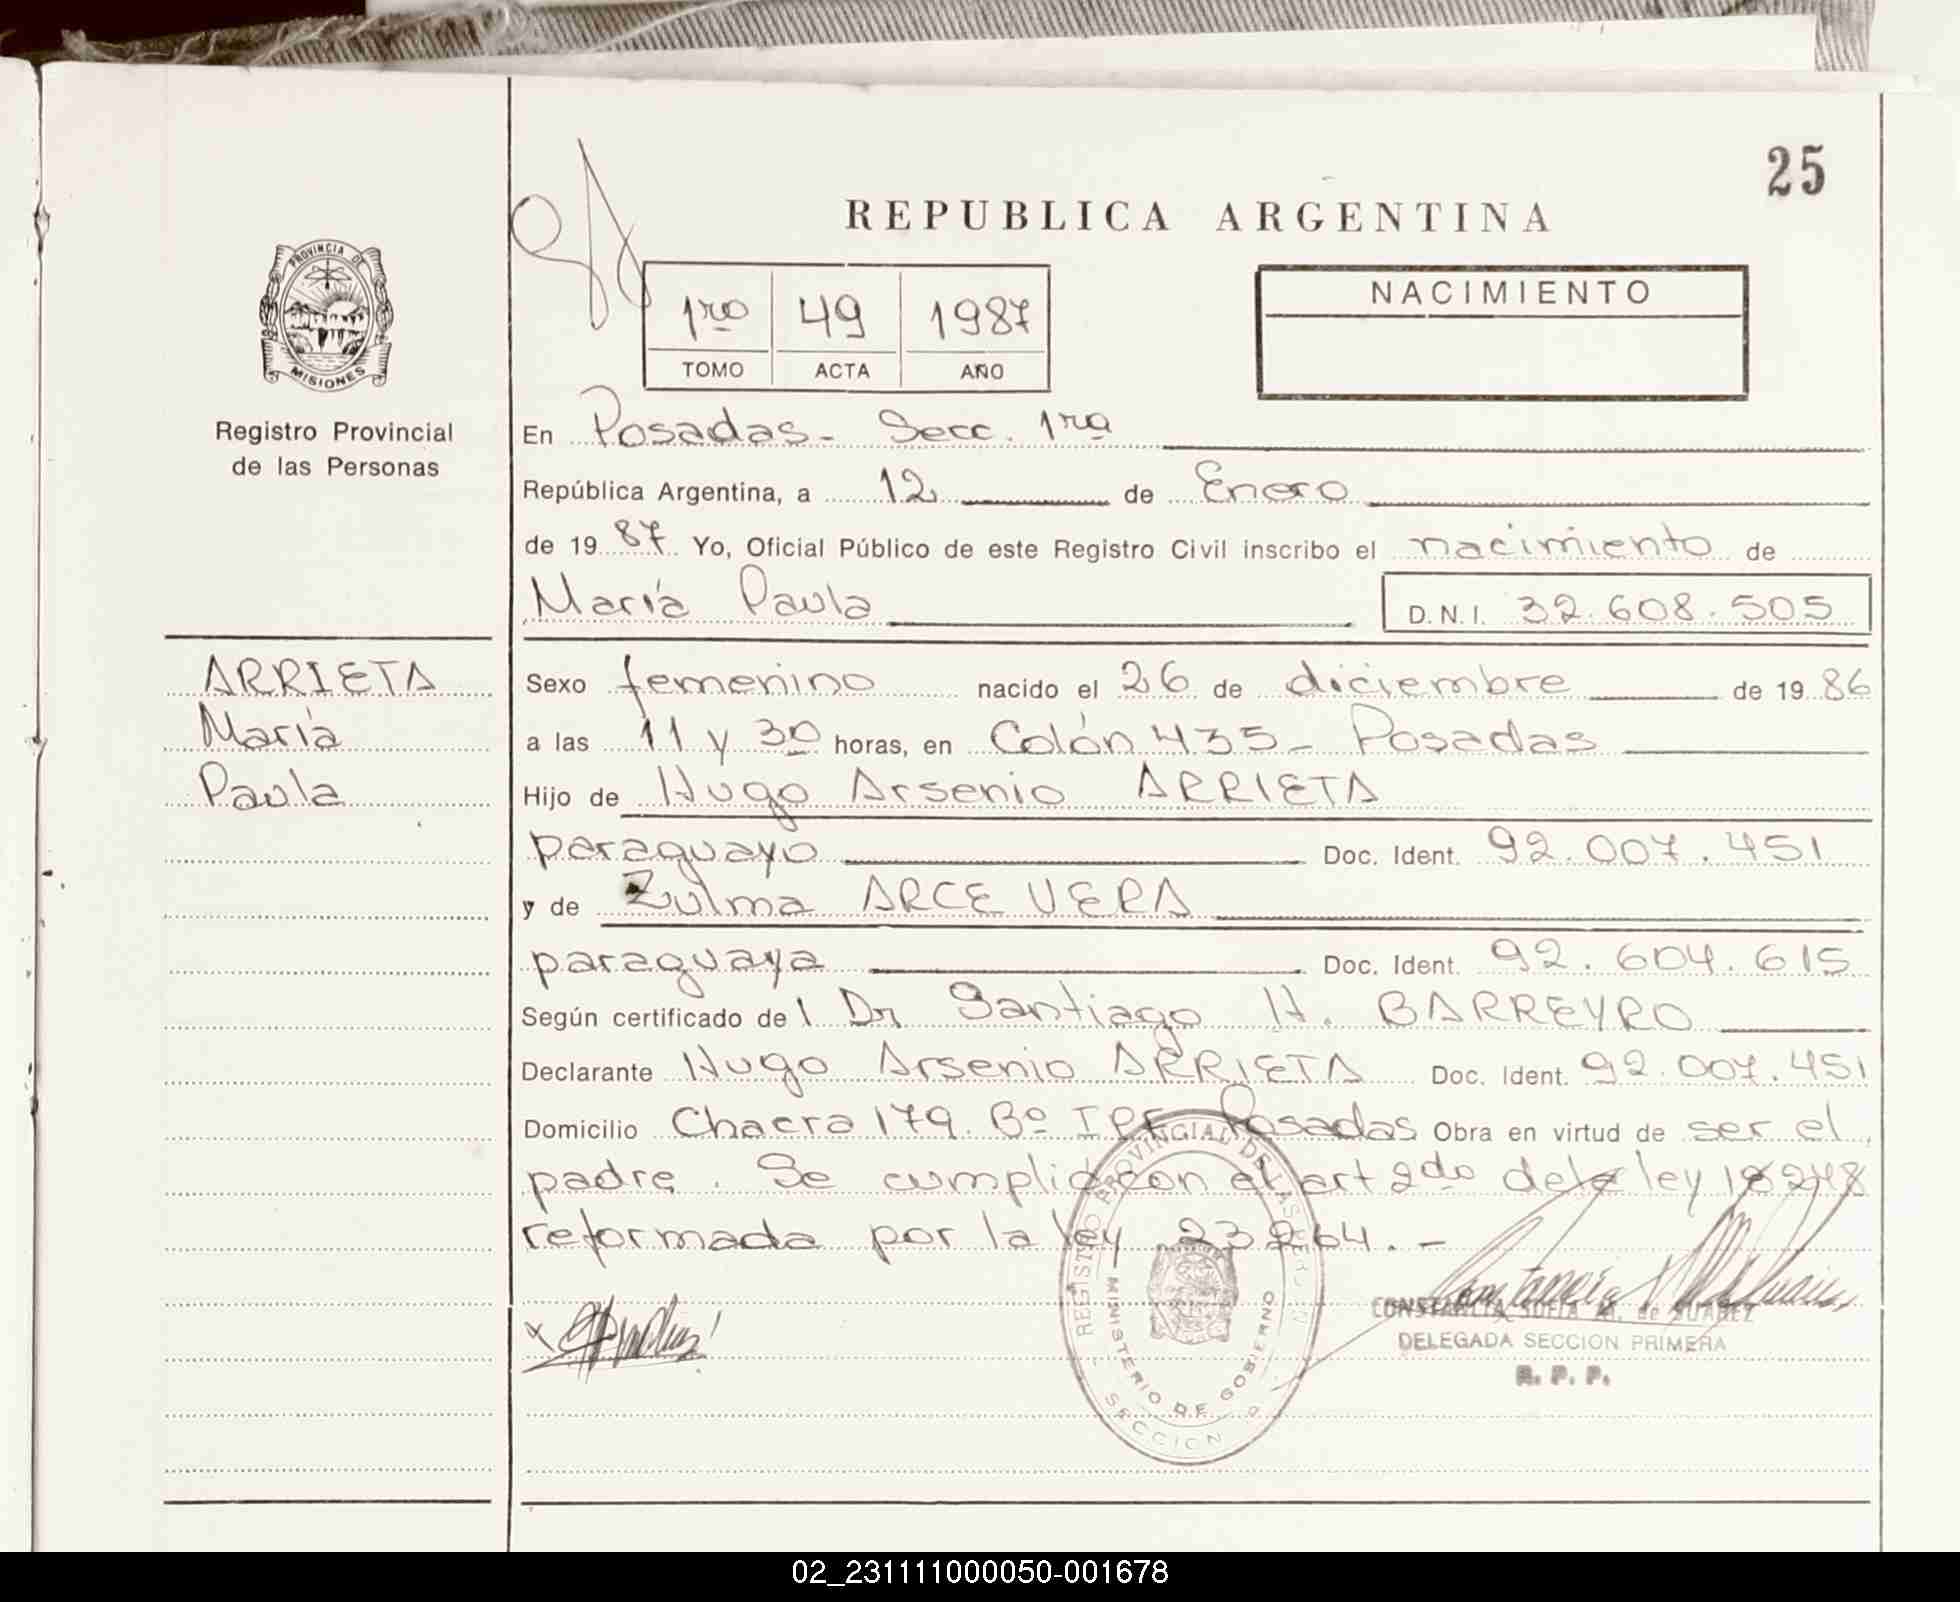 25
REPUBLICA ARGENTINA
PROVINCIA DE
MISIONES
Registro Provincial
de las Personas
1ro 49 1987
TOMO ACTA AÑO
NACIMIENTO
En Posadas - Secc. 1ra
República Argentina, a 12 de Enero
de 1987 Yo, Oficial Público de este Registro Civil inscribo el nacimiento de
María Paula D.N.I. 32.608.505
ARRIETA
María
Paula
Sexo femenino nacido el 26 de diciembre de 1986
a las 11 y 30 horas, en Colón 435 - Posadas
Hijo de Hugo Arsenio ARRIETA
paraguayo Doc. Ident. 92.007.451
y de Zulma ARCE VERA
paraguaya Doc. Ident. 92.604.615
Según certificado del Dr Santiago H. BARREYRO
Declarante Hugo Arsenio ARRIETA Doc. Ident. 92.007.451
Domicilio Chacra 179. Bº Posadas Obra en virtud de ser el
padre. Se cumplió con el art 2do de la ley 18248
reformada por la ley 23264.-
REGISTRO PROVINCIAL DE LAS PERSONAS
MINISTERIO DE GOBIERNO
SECCION
CONSTANCIA SOFIA M. de SUAREZ
DELEGADA SECCION PRIMERA
R. P. P.
02_231111000050-001678